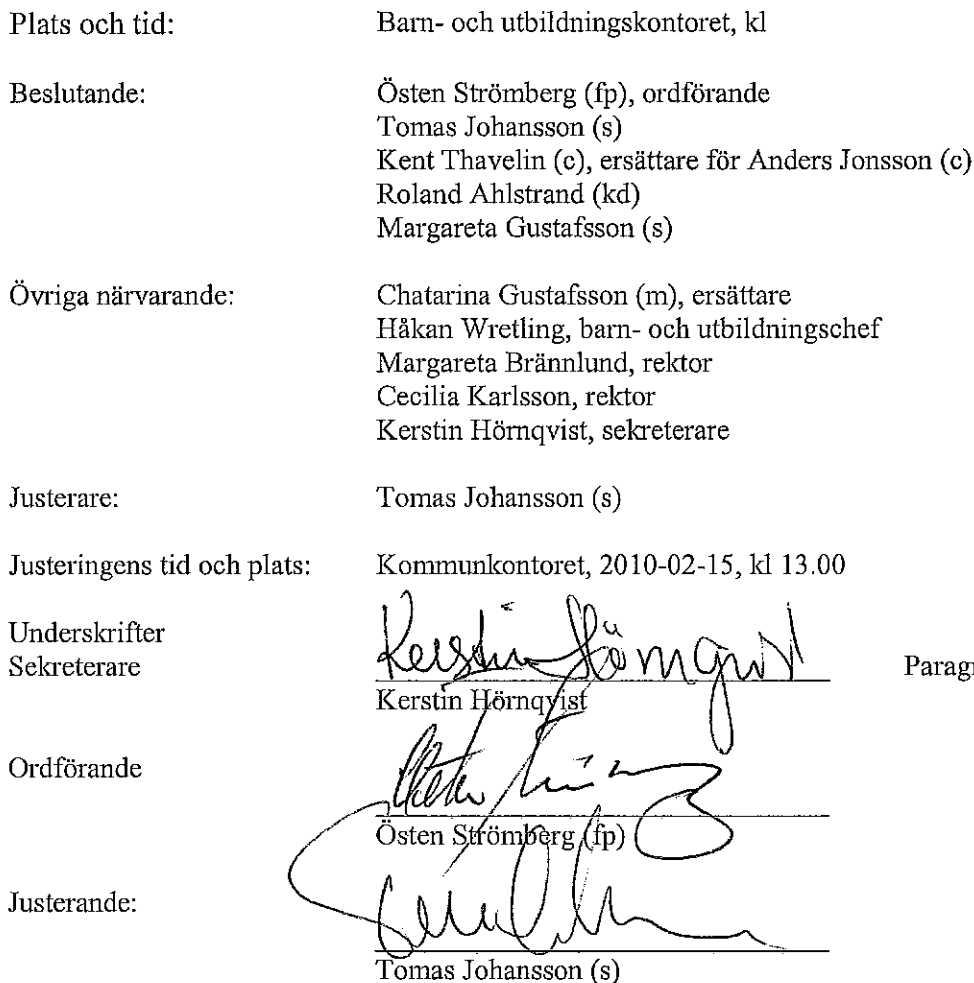 Plats och tid: Barn- och utbildningskontoret, kl
Beslutande: Östen Strömberg (fp), ordförande
Tomas Johansson (s)
Kent Thavelin (c), ersättare för Anders Jonsson (c)
Roland Ahlstrand (kd)
Margareta Gustafsson (s)
Övriga närvarande: Chatarina Gustafsson (m), ersättare
Håkan Wretling, barn- och utbildningschef
Margareta Brännlund, rektor
Cecilia Karlsson, rektor
Kerstin Hörnqvist, sekreterare
Justerare: Tomas Johansson (s)
Justeringens tid och plats: Kommunkontoret, 2010-02-15, kl 13.00
Underskrifter
Sekreterare Kerstin Hörnqvist Paragr
Kerstin Hörnqvist
Ordförande
Östen Strömberg (fp)
Justerande:
Tomas Johansson (s)